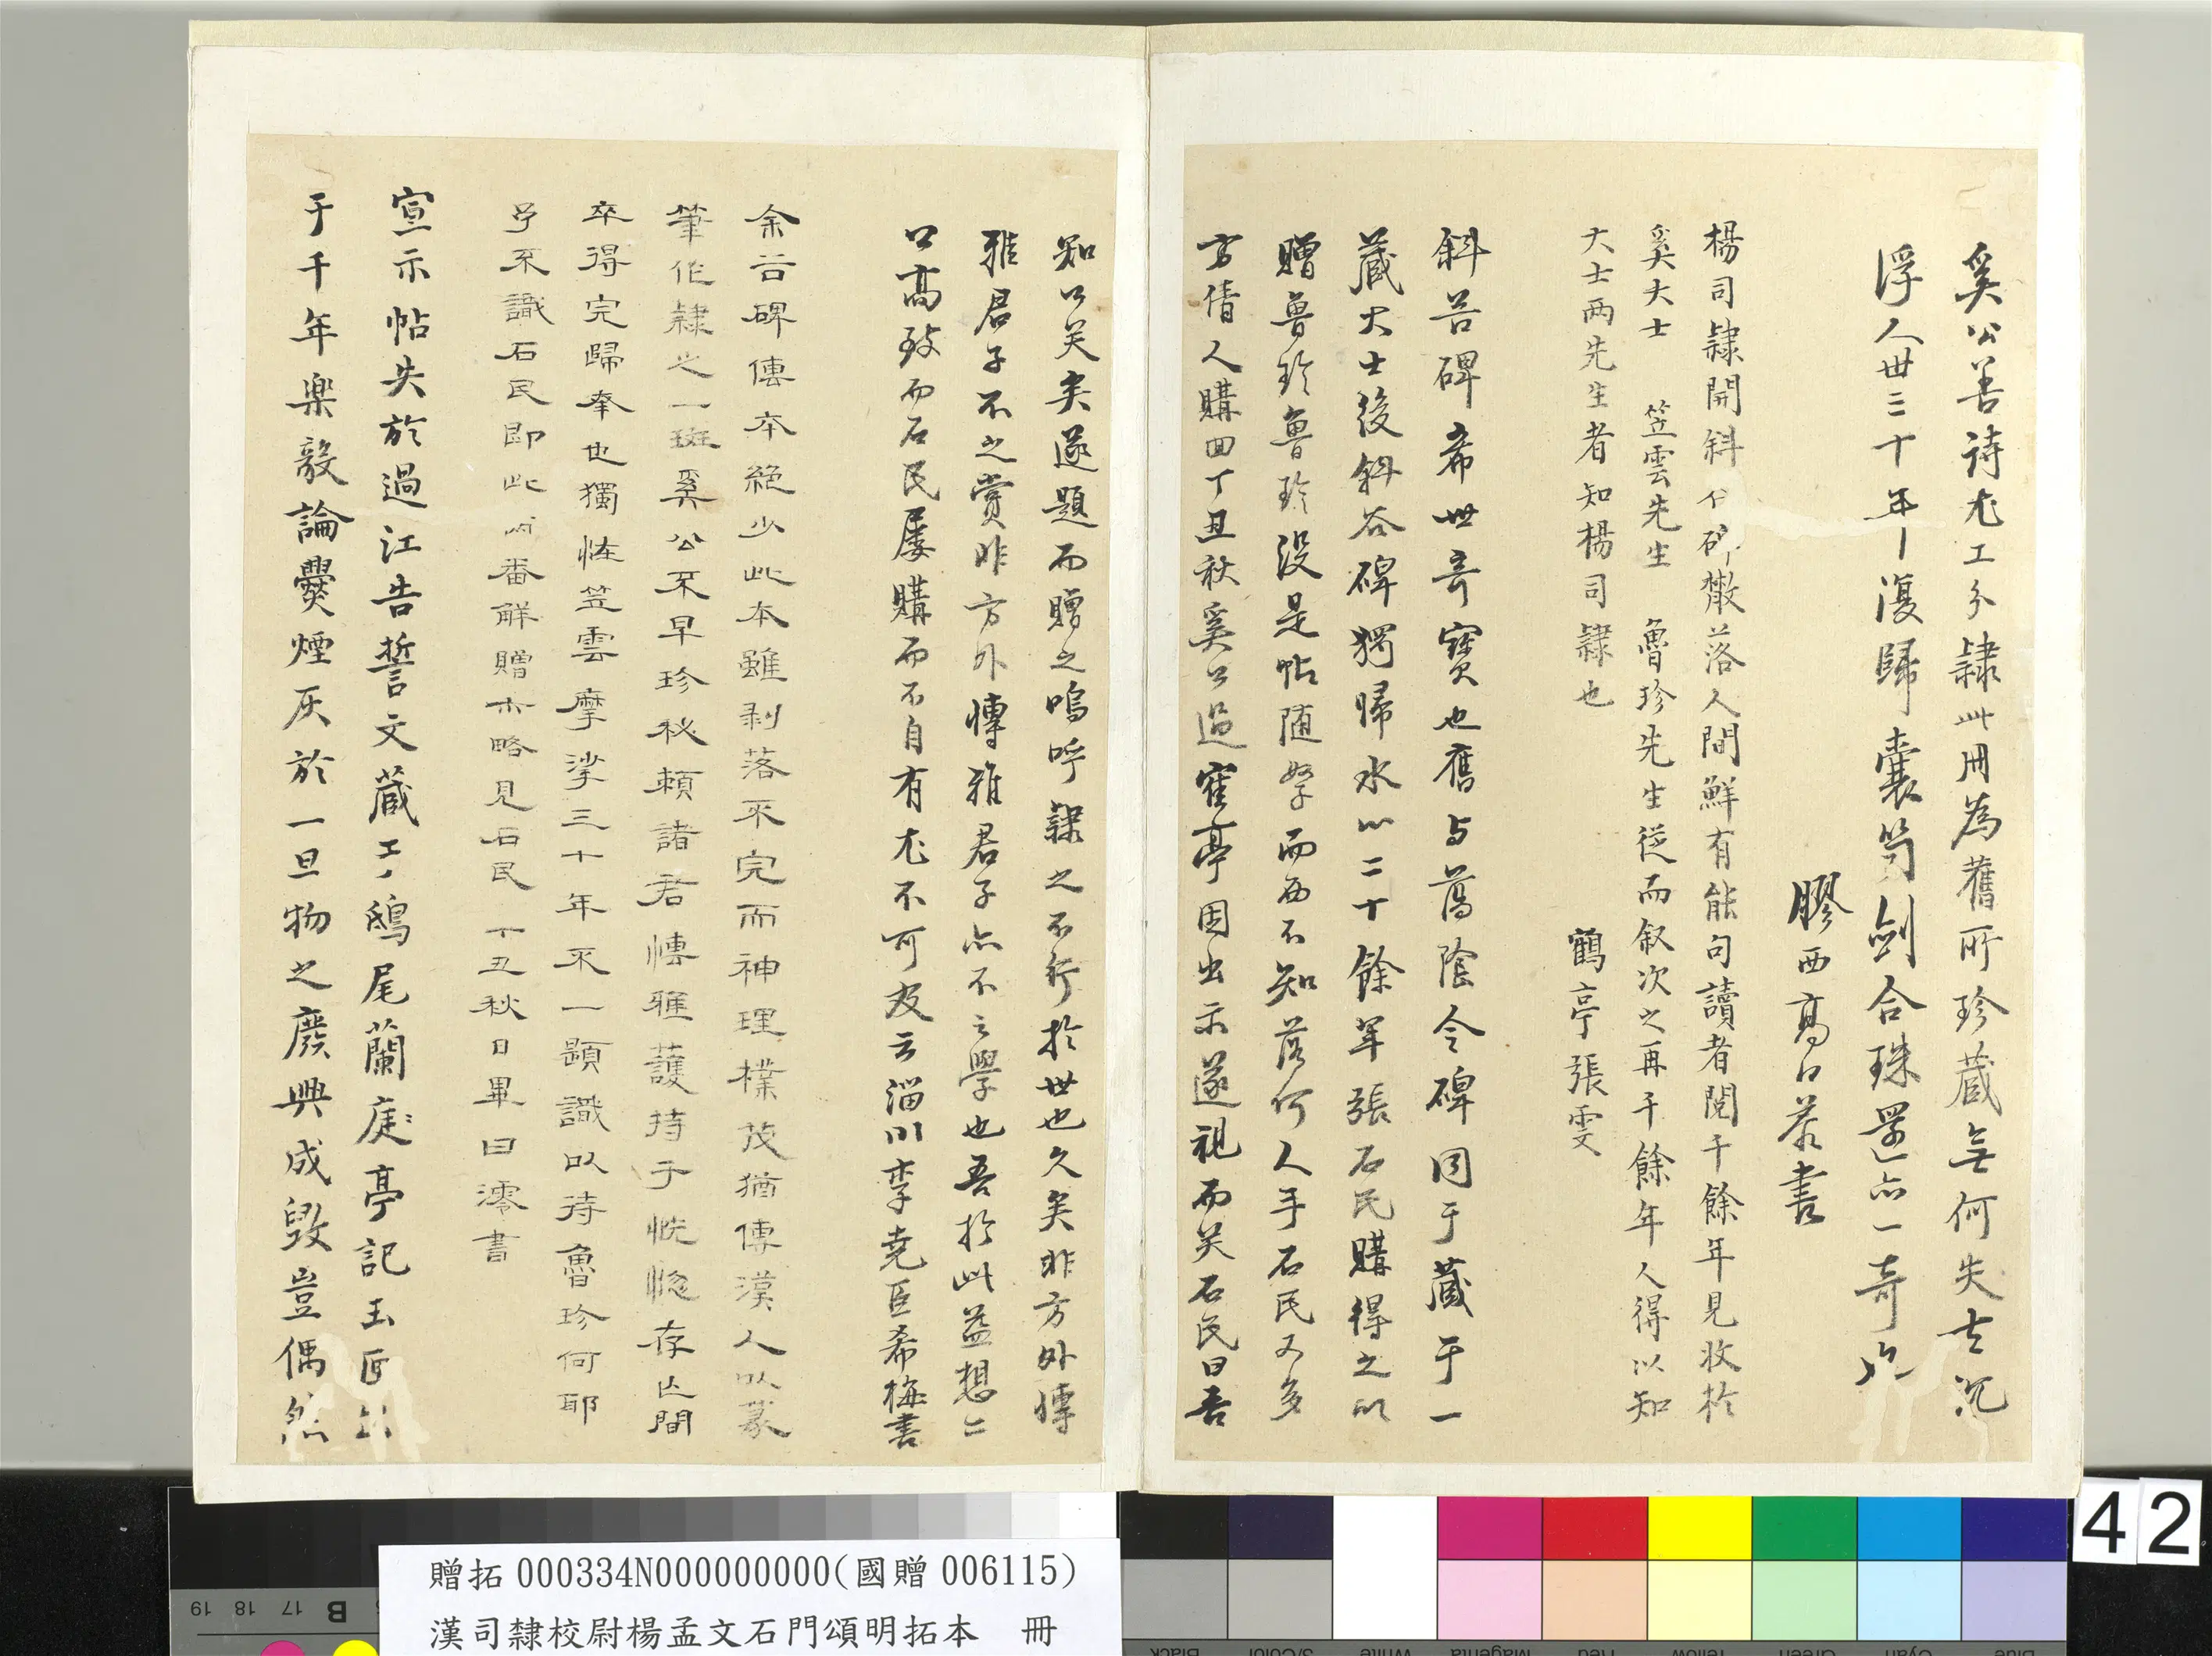 奚公善詩尤工分隸此冊為舊所珍藏無何失去沉
浮人世三十年復歸囊笥劍合珠還亦一奇也
膠西高日恭書
楊司隸開斜谷碑散落人間鮮有能句讀者閱千餘年見收於
奚大士 笠雲先生 魯珍先生從而敘次之再千餘年人得以知
大士兩先生者知楊司隸也
鶴亭張雯
斜谷碑希世奇寶也舊與蕩陰令碑同于藏于一
藏大士後斜谷碑獨歸水心二十餘年張石民購得之以
贈魯珍魯珍沒是帖隨孥而西不知落何人手石民又多
方倩人購回丁丑秋奚公過寉亭因出示遂視而笑石民曰吾
知公笑矣遂題而贈之嗚呼隸之不行於世也久矣非方外博
雅君子不之賞非方外博雅君子亦不之學也吾於此益想二
公高致而石民屢購而不自有尤不可及云淄川李堯臣希梅書
余谷碑傳本絕少此本雖剥落不完而神理樸茂猶傳漢人以篆
筆作隸之一斑奚公不早珍秘賴諸君博雅護持于恍惚存亡間
卒得完歸奉也獨恠笠雲摩挲三十年不一題識以待魯珍何耶
予不識石民即此兩番解贈亦略見石民丁丑秋日畢日澪書
宣示帖失於過江告誓文藏于鴟尾蘭庭亭記玉匣出
于千年樂毅論爨煙灰於一旦物之廢興成毀豈偶然
42
贈拓000334N000000000(國贈006115)
漢司隸校尉楊孟文石門頌明拓本 冊
19 18 17 B
Black 3/Color White Magenta Red Yellow Green Cyan Blue